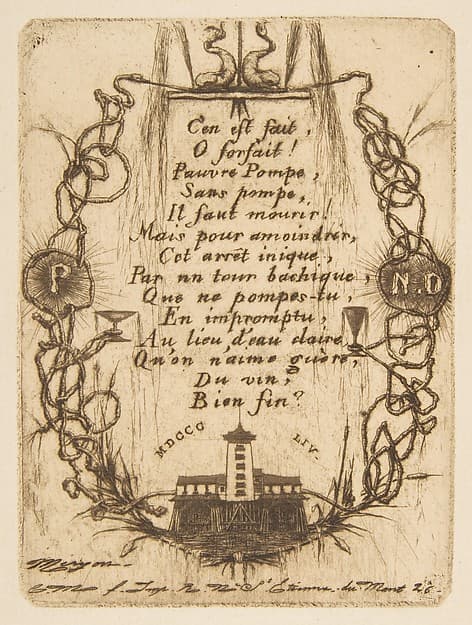 C'en est fait,
O forfait!
Pauvre Pompe,
Sans pompe,
Il faut mourir!
Mais pour amoindrir,
Cet arrêt inique,
Par un tour bachique,
Que ne pompes-tu,
En impromptu,
Au lieu d'eau claire,
Qu'on n'aime guère,
Du vin,
Bien fin?
P.
N.D
MDCCC LIV.
Meryon
C M f. Imp. R. N. St Etienne du Mont 26.